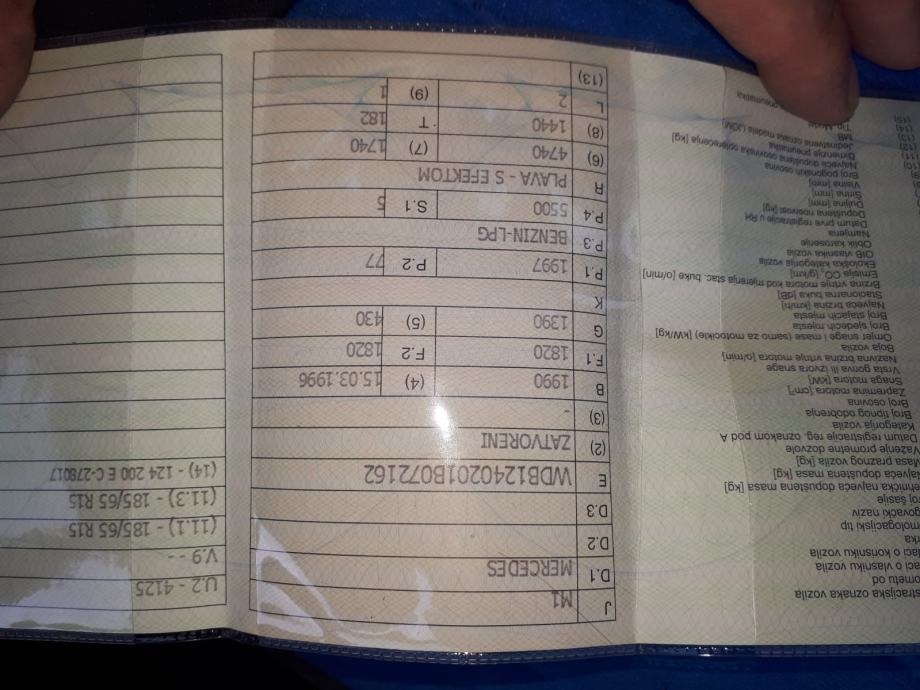 stracijska oznaka vozila
ometu od
aci o vlasniku vozila
aci o korisniku vozila
rka
mologacijski tip
govački naziv
roj šasije
ehnička najveća dopuštena masa [kg]
Najveća dopuštena masa [kg]
Masa praznog vozila [kg]
Važenje prometne dozvole
Datum registracije reg. oznakom pod A
Kategorija vozila
Broj tipnog odobrenja
Broj osovina
Zapremina motora [cm³]
Snaga motora [kW]
Vrsta goriva ili izvora snage
Nazivna brzina vrtnje motora [o/min]
Boja vozila
Omjer snage i mase (samo za motocikle) [kW/kg]
Broj sjedećih mjesta
Broj stajaćih mjesta
Najveća brzina [km/h]
Stacionarna buka [dB]
Brzina vrtnje motora kod mjerenja stac. buke [o/min]
Emisija CO₂ [g/km]
Ekološka kategorija vozila
OIB vlasnika vozila
Oblik karoserije
Namjena
Datum prve registracije u RH
Dopuštena nosivost [kg]
Duljina [mm]
Širina [mm]
Visina [mm]
Broj pogonskih osovina
(10) Najveće dopuštena osovinska opterećenja [kg]
(11) Dimenzije pneumatika
(12) Jedinstvena oznaka modela (JOM)
(13) MB
(14) Tip
(15) pneumatika
J M1
D.1 MERCEDES
D.2
D.3
E WDB1240201B072162
(2) ZATVORENI
(3) -
B 1990 (4) 15.03.1996
F.1 1820 F.2 1820
G 1390 (5) 430
K
P.1 1997 P.2 77
P.3 BENZIN-LPG
P.4 5500 S.1 5
R PLAVA - S EFEKTOM
(6) 4740 (7) 1740
(8) 1440 T 182
L 2 (9) 1
(13)
U.2 - 4125
V.9 - -
(11.1) - 185/65 R15
(11.3) - 185/65 R15
(14) - 124 200 E C-278017